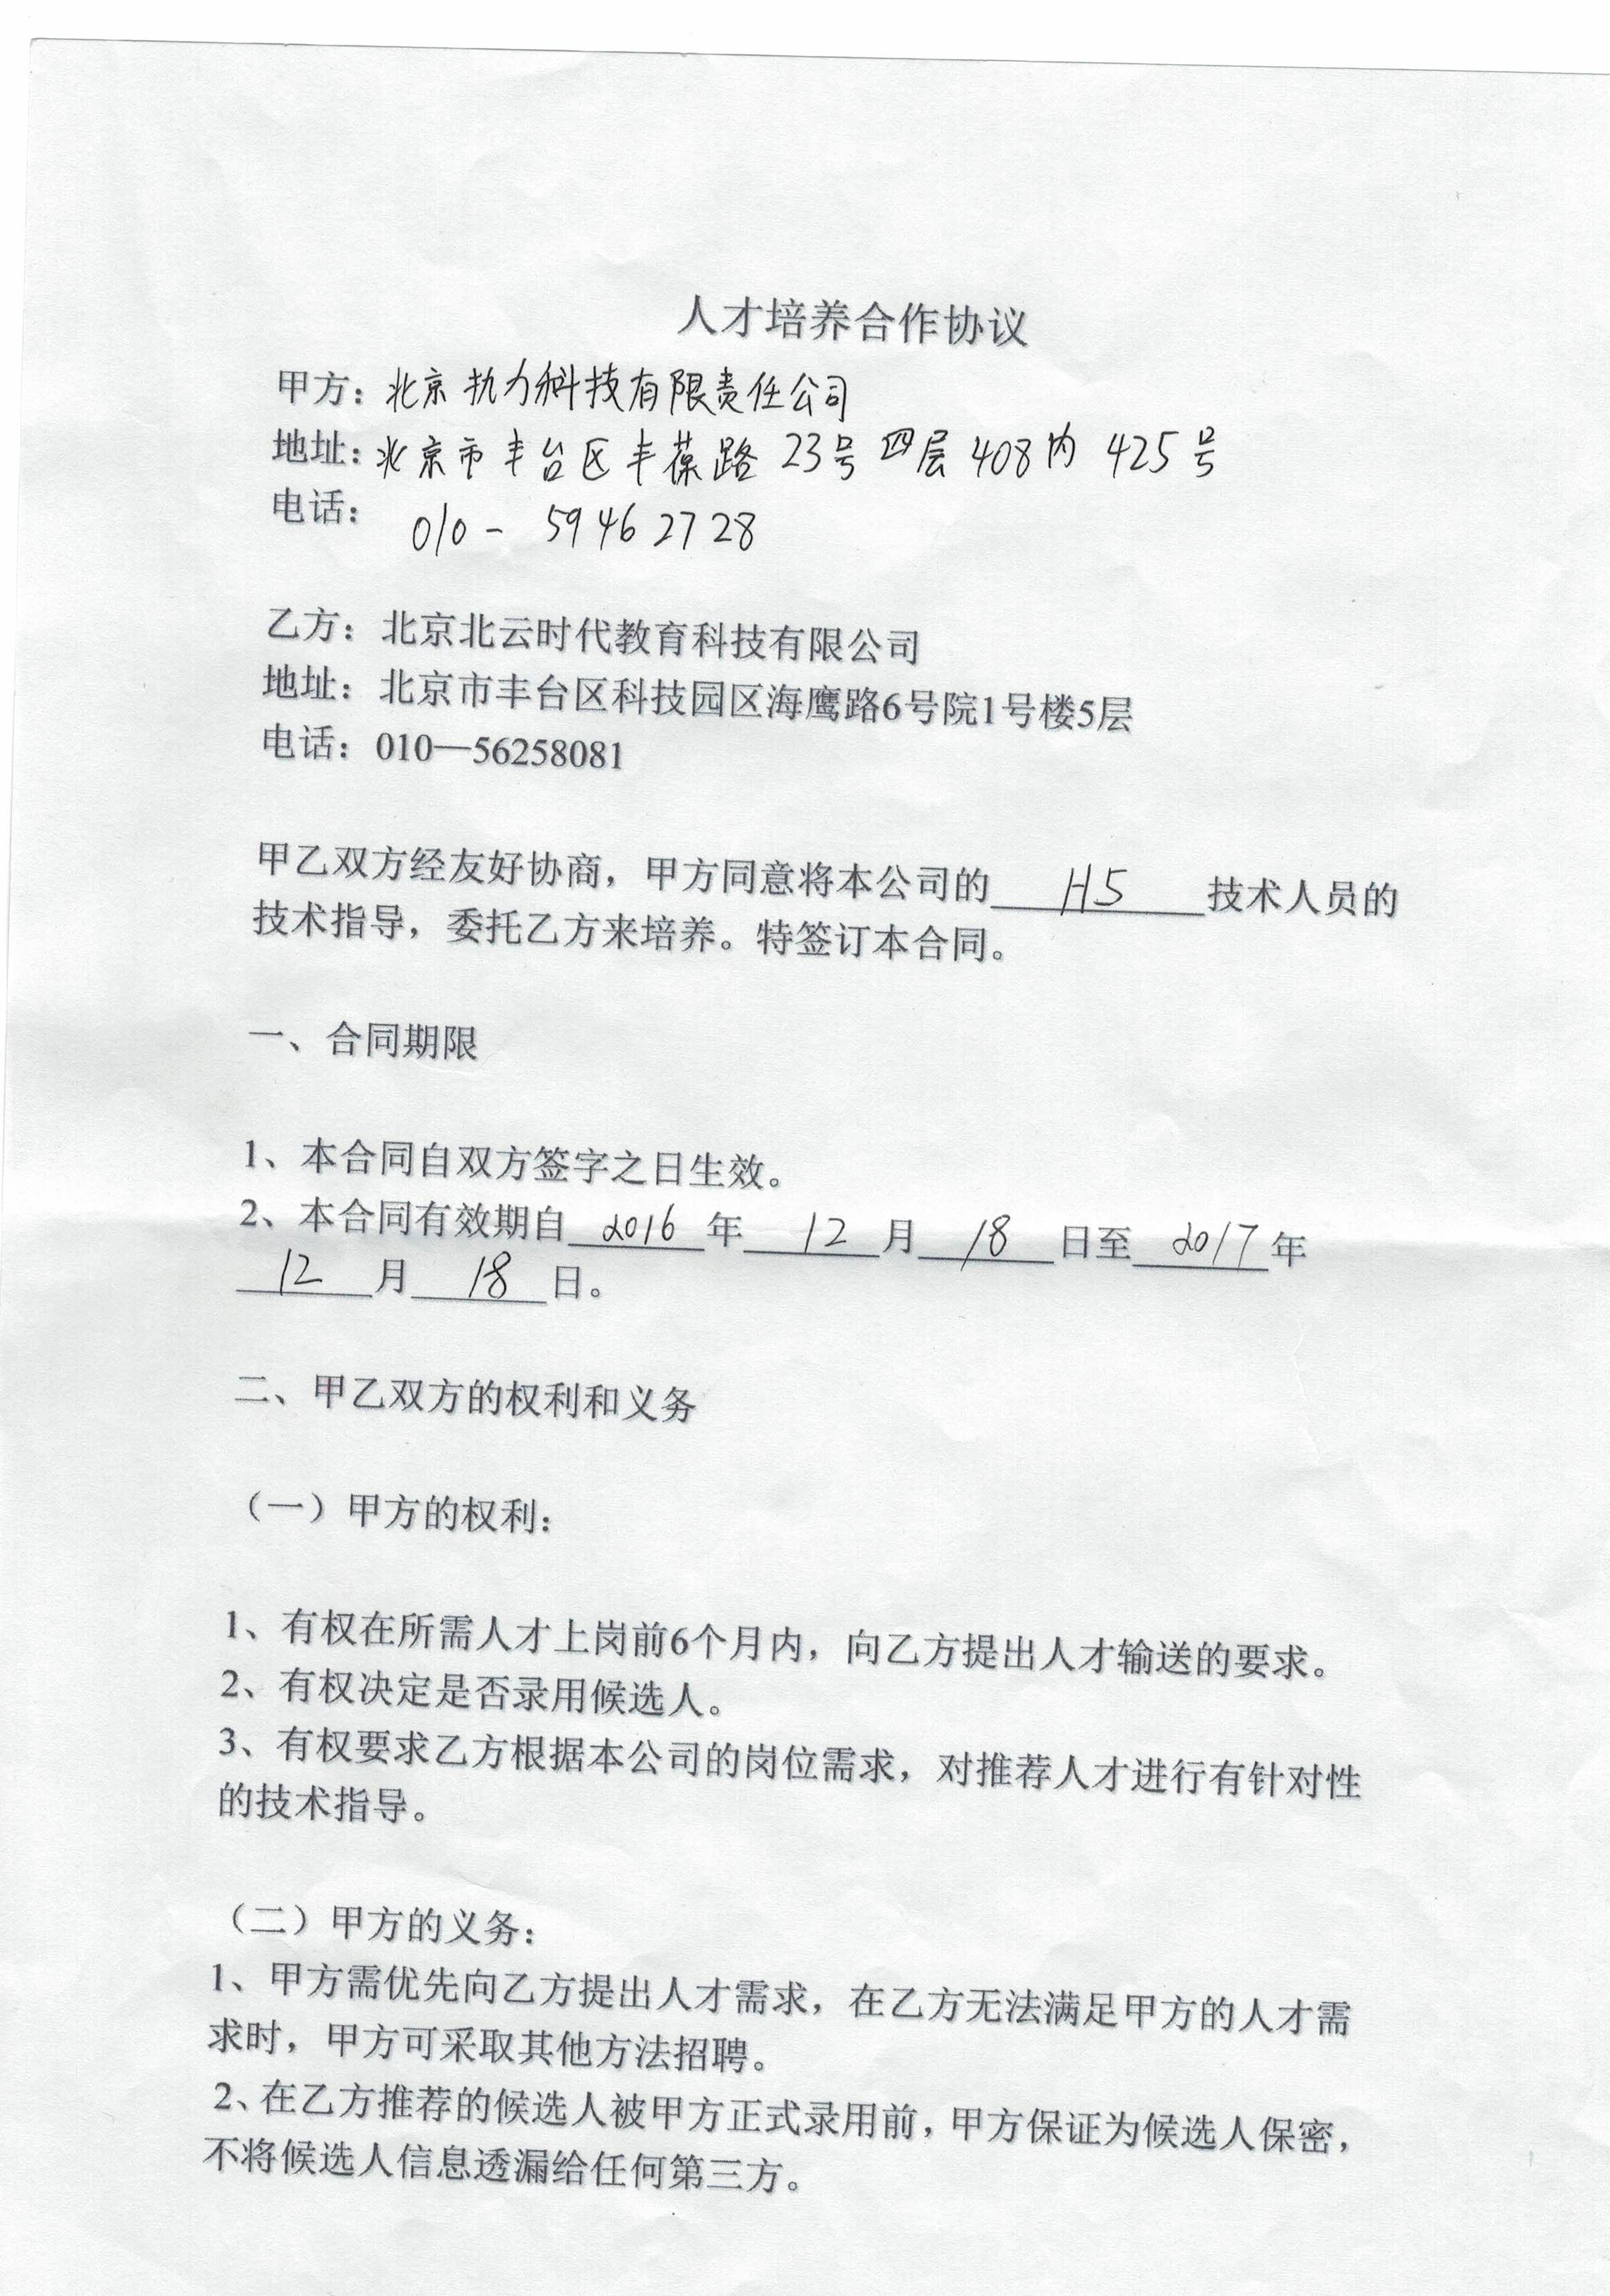 人才培养合作协议
甲方：北京执力科技有限责任公司
地址：北京市丰台区丰葆路 23号 四层 408内 425号
电话：010- 59462728
乙方：北京北云时代教育科技有限公司
地址：北京市丰台区科技园区海鹰路6号院1号楼5层
电话：010—56258081
甲乙双方经友好协商，甲方同意将本公司的 H5 技术人员的
技术指导，委托乙方来培养。特签订本合同。
一、合同期限
1、本合同自双方签字之日生效。
2、本合同有效期自 2016 年 12 月 18 日至 2017 年
12 月 18 日。
二、甲乙双方的权利和义务
（一）甲方的权利：
1、有权在所需人才上岗前6个月内，向乙方提出人才输送的要求。
2、有权决定是否录用候选人。
3、有权要求乙方根据本公司的岗位需求，对推荐人才进行有针对性
的技术指导。
（二）甲方的义务：
1、甲方需优先向乙方提出人才需求，在乙方无法满足甲方的人才需
求时，甲方可采取其他方法招聘。
2、在乙方推荐的候选人被甲方正式录用前，甲方保证为候选人保密，
不将候选人信息透漏给任何第三方。